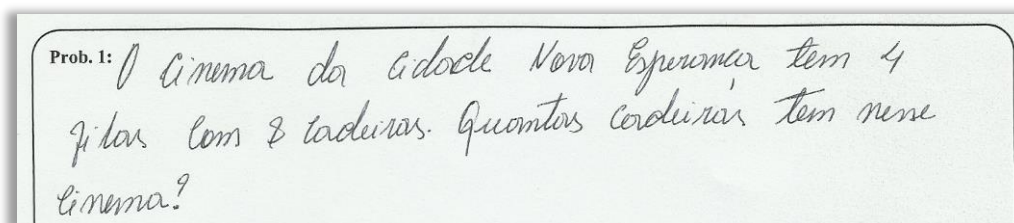 Prob. 1: O Cinema da cidade Nova Esperança tem 4
filas com 8 cadeiras. Quantas cadeiras tem nesse
cinema?